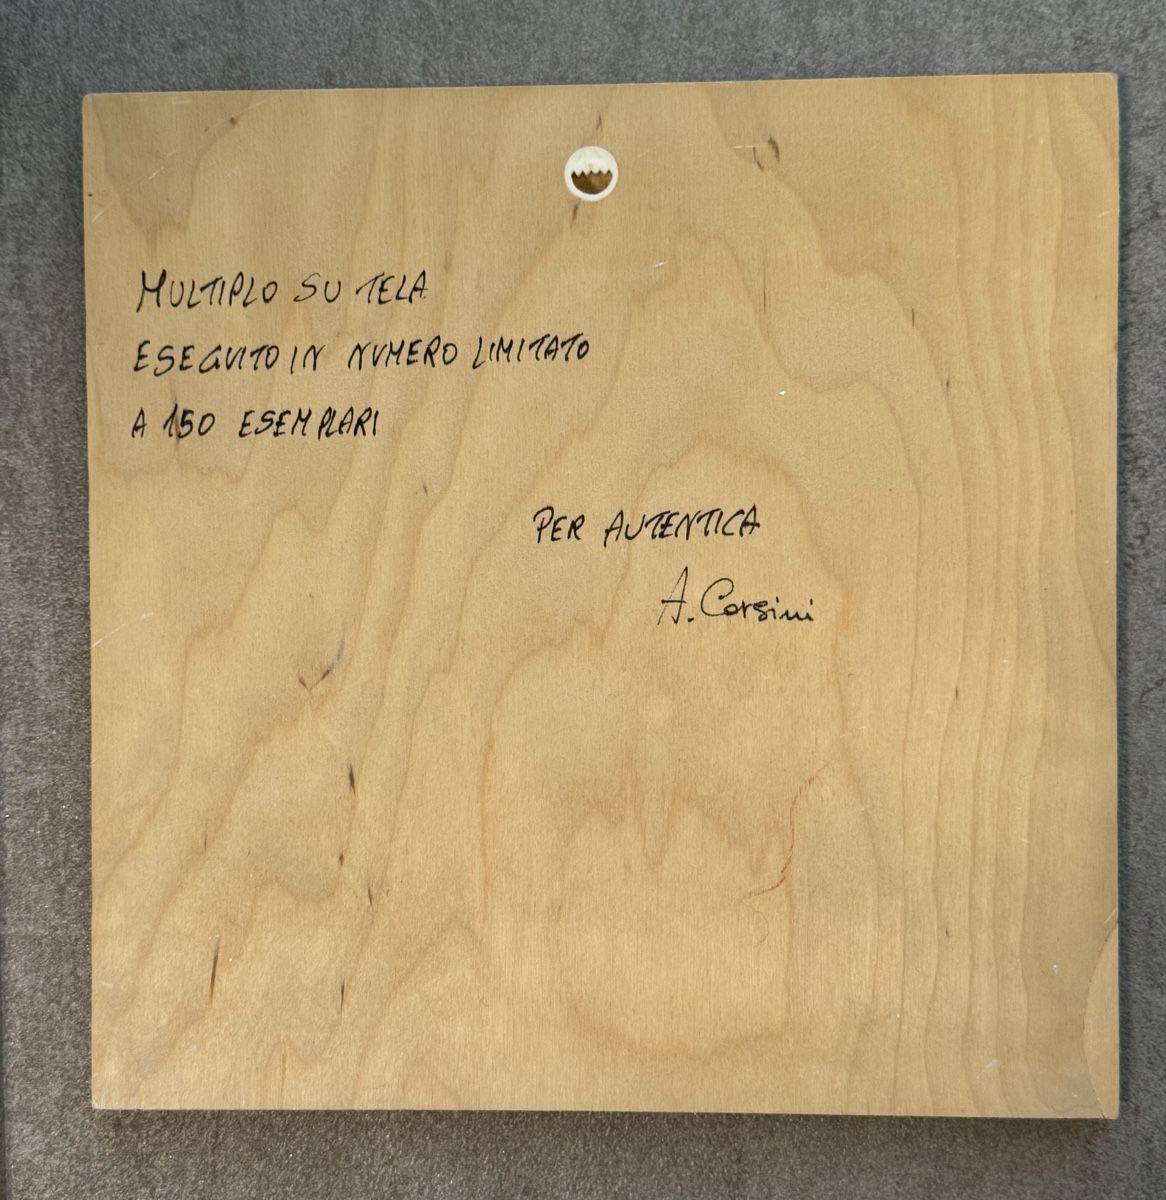 MULTIPLO SU TELA
ESEGUITO IN NUMERO LIMITATO
A 150 ESEMPLARI
PER AUTENTICA
A. Corsini